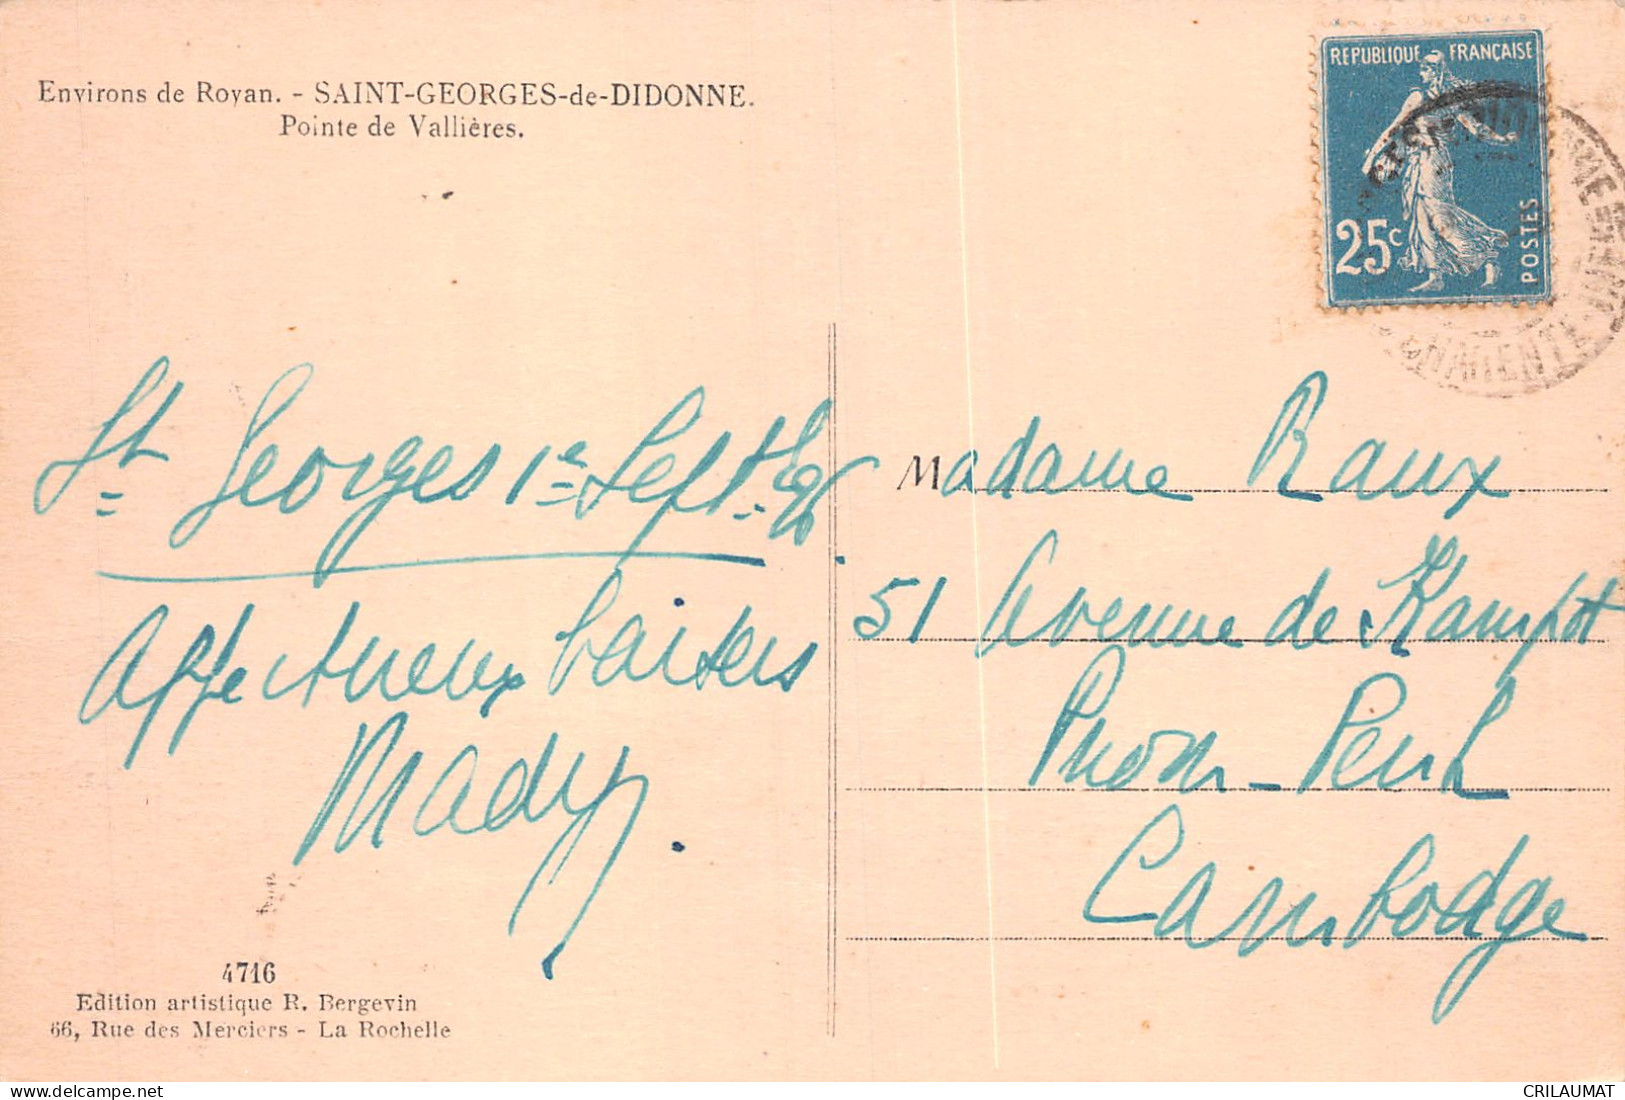 Environs de Royan. - SAINT-GEORGES-de-DIDONNE.
Pointe de Vallières.
REPUBLIQUE FRANÇAISE
25c
POSTES
St Georges 1e Sept
Affectueux baisers
Mady.
Madame Raux
51 Avenue de Kampot
Pnom-Penh
Cambodge
4716
Edition artistique R. Bergevin
66, Rue des Merciers - La Rochelle
www.delcampe.net
CRILAUMAT